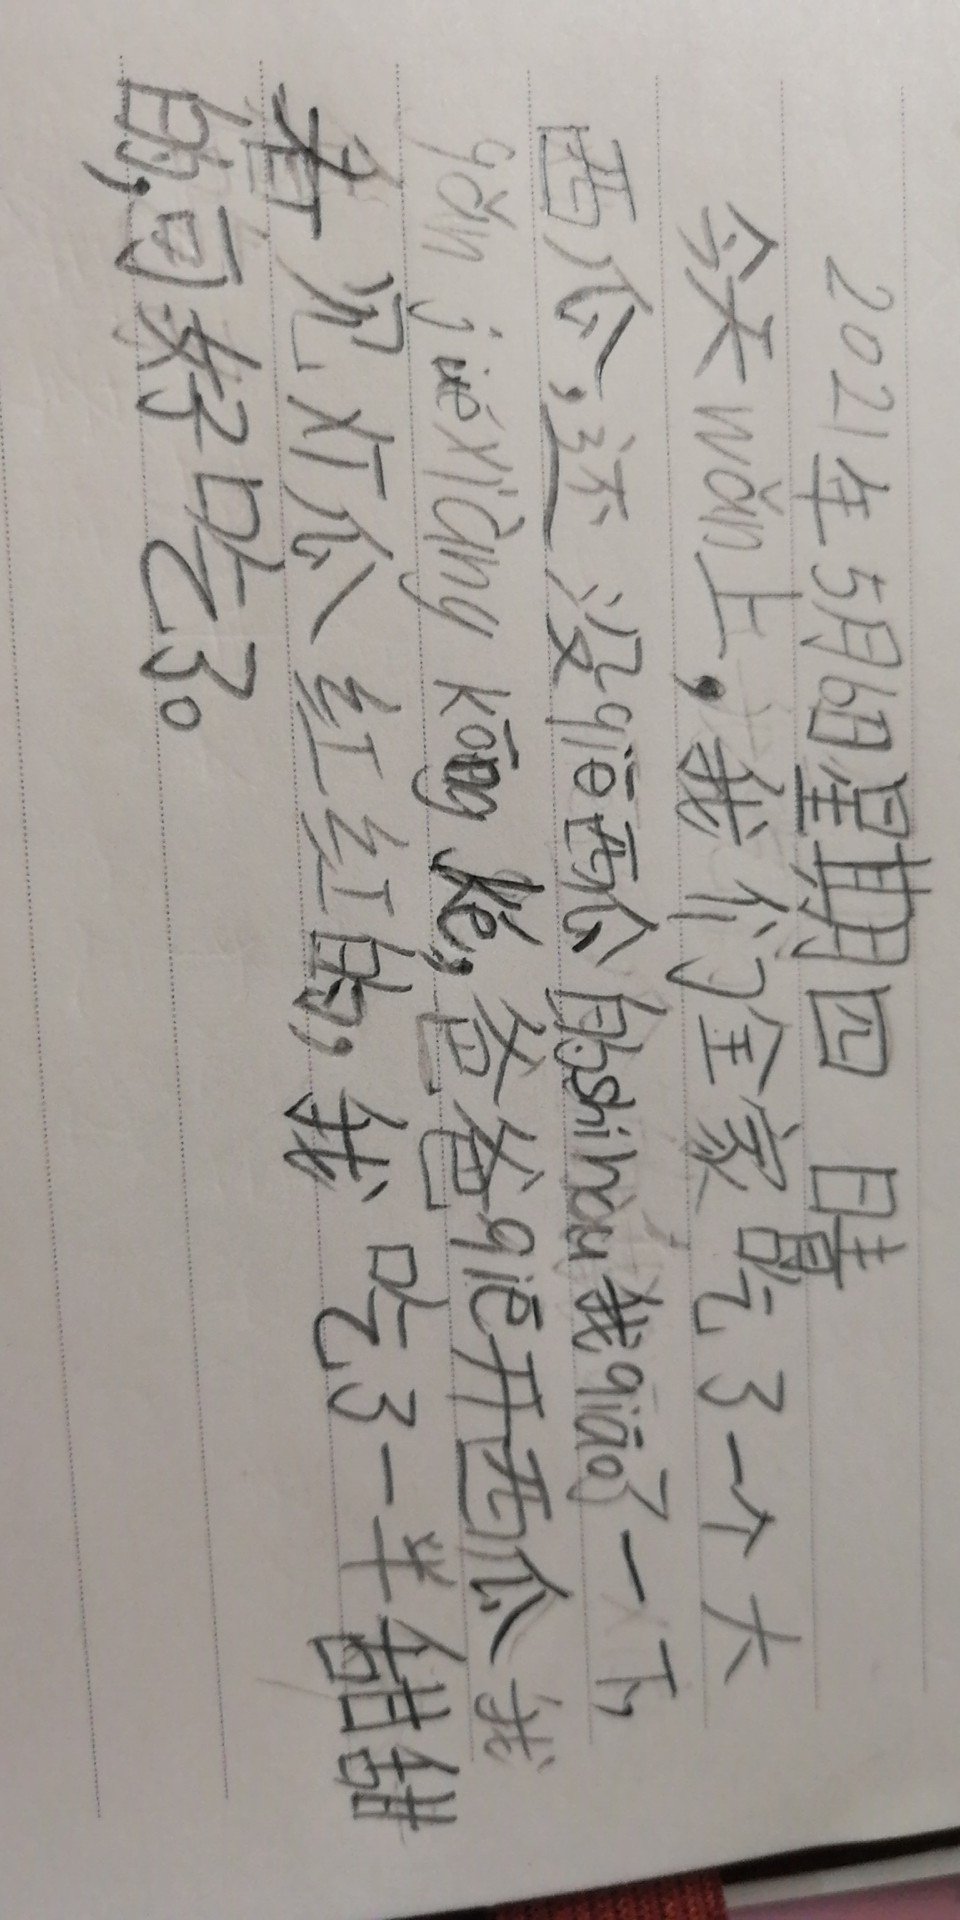 2021年5月6日星期四 晴
今天wǎn上，我们全家吃了一个大
西瓜，还没qiē西瓜的shihou我qiāo了一下，
gǎn jué xiàng kōng ké，爸爸qiē开西瓜我
看见灯瓜红红的，我吃了一半甜甜
的，可好吃了。